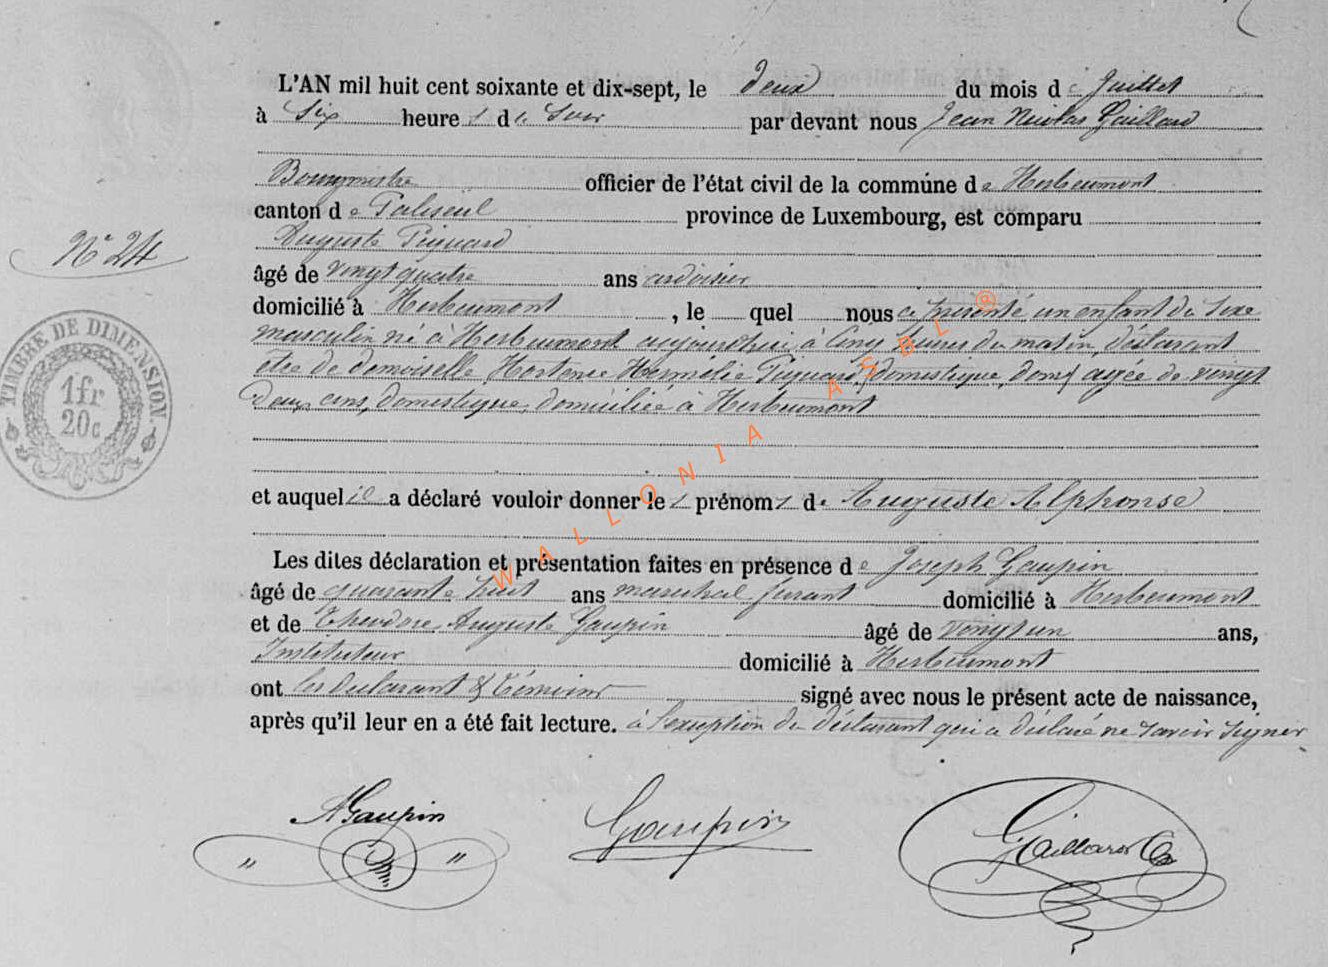 L'AN mil huit cent soixante et dix-sept, le deux du mois de Juillet
à Six heures du Soir par devant nous Jean Nicolas Gaillard
Bourgmestre officier de l'état civil de la commune de Herbeumont
canton de Paliseul province de Luxembourg, est comparu
Auguste Piquard
N° 24
âgé de vingt quatre ans ardoisier
domicilié à Herbeumont, le quel nous a présenté un enfant du sexe
masculin né à Herbeumont aujourd'hui à Cinq heures du matin, déclarant
être de demoiselle Hortense Hermélie Piquard (domestique, dom) agée de vingt
deux ans, domestique, domiciliée à Herbeumont
TIMBRE DE DIMENSION.
1fr
20c
et auquel il a déclaré vouloir donner les prénoms de Auguste Alphonse
Les dites déclaration et présentation faites en présence de Joseph Gaupin
âgé de quarante huit ans maréchal ferrant domicilié à Herbeumont
et de Théodore Auguste Gaupin âgé de vingt un ans,
Instituteur domicilié à Herbeumont
ont les déclarant & témoins signé avec nous le présent acte de naissance,
après qu'il leur en a été fait lecture. à l'exception du déclarant qui a déclaré ne savoir signer
AGaupin Gaupin Gaillard
WALLONIA ASBL ®